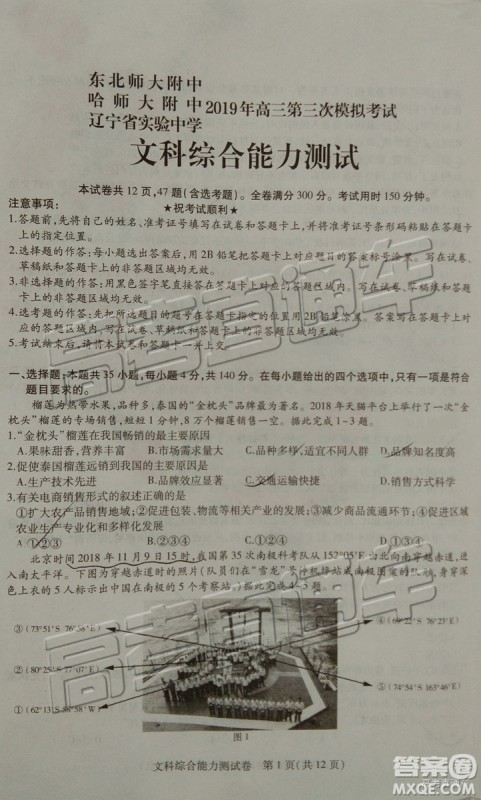 东北师大附中
哈师大附中 2019年高三第三次模拟考试
辽宁省实验中学
文科综合能力测试
本试卷共12页,47题(含选考题)。全卷满分300分。考试用时150分钟。
★祝考试顺利★
注意事项:
1.答题前,先将自己的姓名、准考证号填写在试卷和答题卡上,并将准考证号条形码粘贴在答题卡
上的指定位置。
2.选择题的作答:每小题选出答案后,用2B铅笔把答题卡上对应题目的答案标号涂黑。写在试卷、
草稿纸和答题卡上的非答题区域均无效。
3.非选择题的作答:用黑色签字笔直接答在答题卡上对应的答题区域内。写在试卷、草稿纸和答题
卡上的非答题区域均无效。
4.选考题的作答:先把所选题目的题号在答题卡上指定的位置用2B铅笔涂黑。答案写在答题卡
上对应的答题区域内,写在试卷、草稿纸和答题卡上的非答题区域均无效。
5.考试结束后,请将本试卷和答题卡一并上交。
一、选择题:本题共35小题,每小题4分,共140分。在每小题给出的四个选项中,只有一项是符合
题目要求的。
榴莲为热带水果,品种多,泰国的“金枕头”品牌最为著名。2018年天猫平台上举行了一次“金
枕头”榴莲的促销活动,短短1分钟,8万个榴莲销售一空。据此完成1~3题。
1.“金枕头”榴莲在我国畅销的最主要原因
A.果味甜香,营养丰富 B.市场需求量大 C.品种多样,适宜不同人群 D.品牌知名度高
2.促使泰国榴莲远销到我国的主要原因是
A.生产技术先进 B.品牌效应显著 C.交通运输快捷 D.销售方式科学
3.有关电商销售形式的叙述正确的是
①扩大农产品销售地域 ②促进包装、物流等相关产业的发展 ③减少商品流通环节 ④促进区域
农业生产专业化和多样化发展
A.①②③ B.②③④ C.①③④ D.①②④
北京时间2018年11月9日15时,我国第35次南极科考队从152°05′E由北向南穿越赤道,进
入南太平洋。下图为穿越赤道时的照片(队员们在“雪龙”号
上的5人标示出中国在南极的5个考察站)。据此完成4~5题。
③(73°51′S 76°58′E)
②(80°25′S 77°07′E)
①(62°13′S 58°58′W)
④(69°22′S 76°22′E)
⑤(74°54′S 163°46′E)
图1
文科综合能力测试卷 第1页(共12页)
高考直通车
高考直通车
高考直通车
答案圈
MXQE.COM